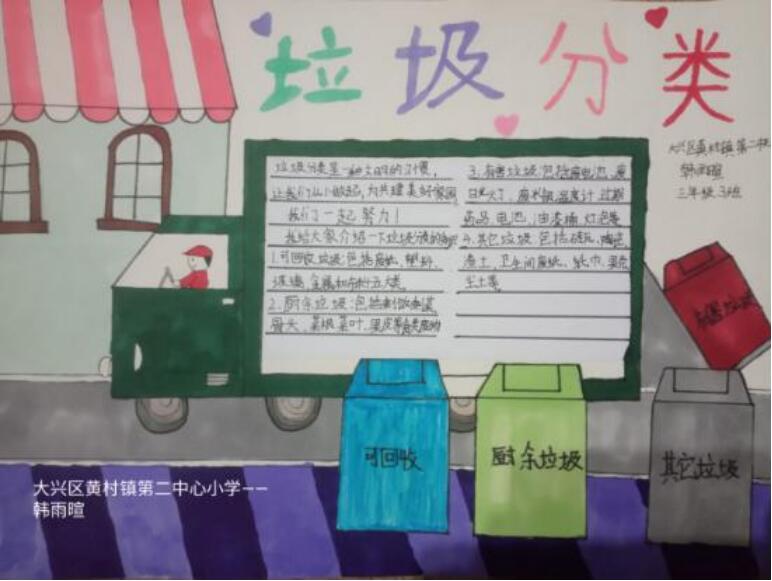 垃圾分类
大兴区黄村镇第二
韩雨暄
三年级3班
垃圾分类是一种文明的习惯，
让我们从小做起，为共建美好家园
我们一起努力！
我给大家介绍一下垃圾分类的知识
1.可回收垃圾：包括废纸、塑料、
玻璃、金属和布料五大类。
2.厨余垃圾：包括剩饭剩菜
骨头、菜根菜叶、果皮等食品类废物
3.有害垃圾：包括废电池、废
日光灯、废水银温度计、过期
药品、电池、油漆桶、灯泡等
4.其它垃圾 包括砖瓦、陶瓷
渣土、卫生间废纸、纸巾、果壳
尘土等
有害垃圾
可回收
厨余垃圾
其它垃圾
大兴区黄村镇第二中心小学——
韩雨暄